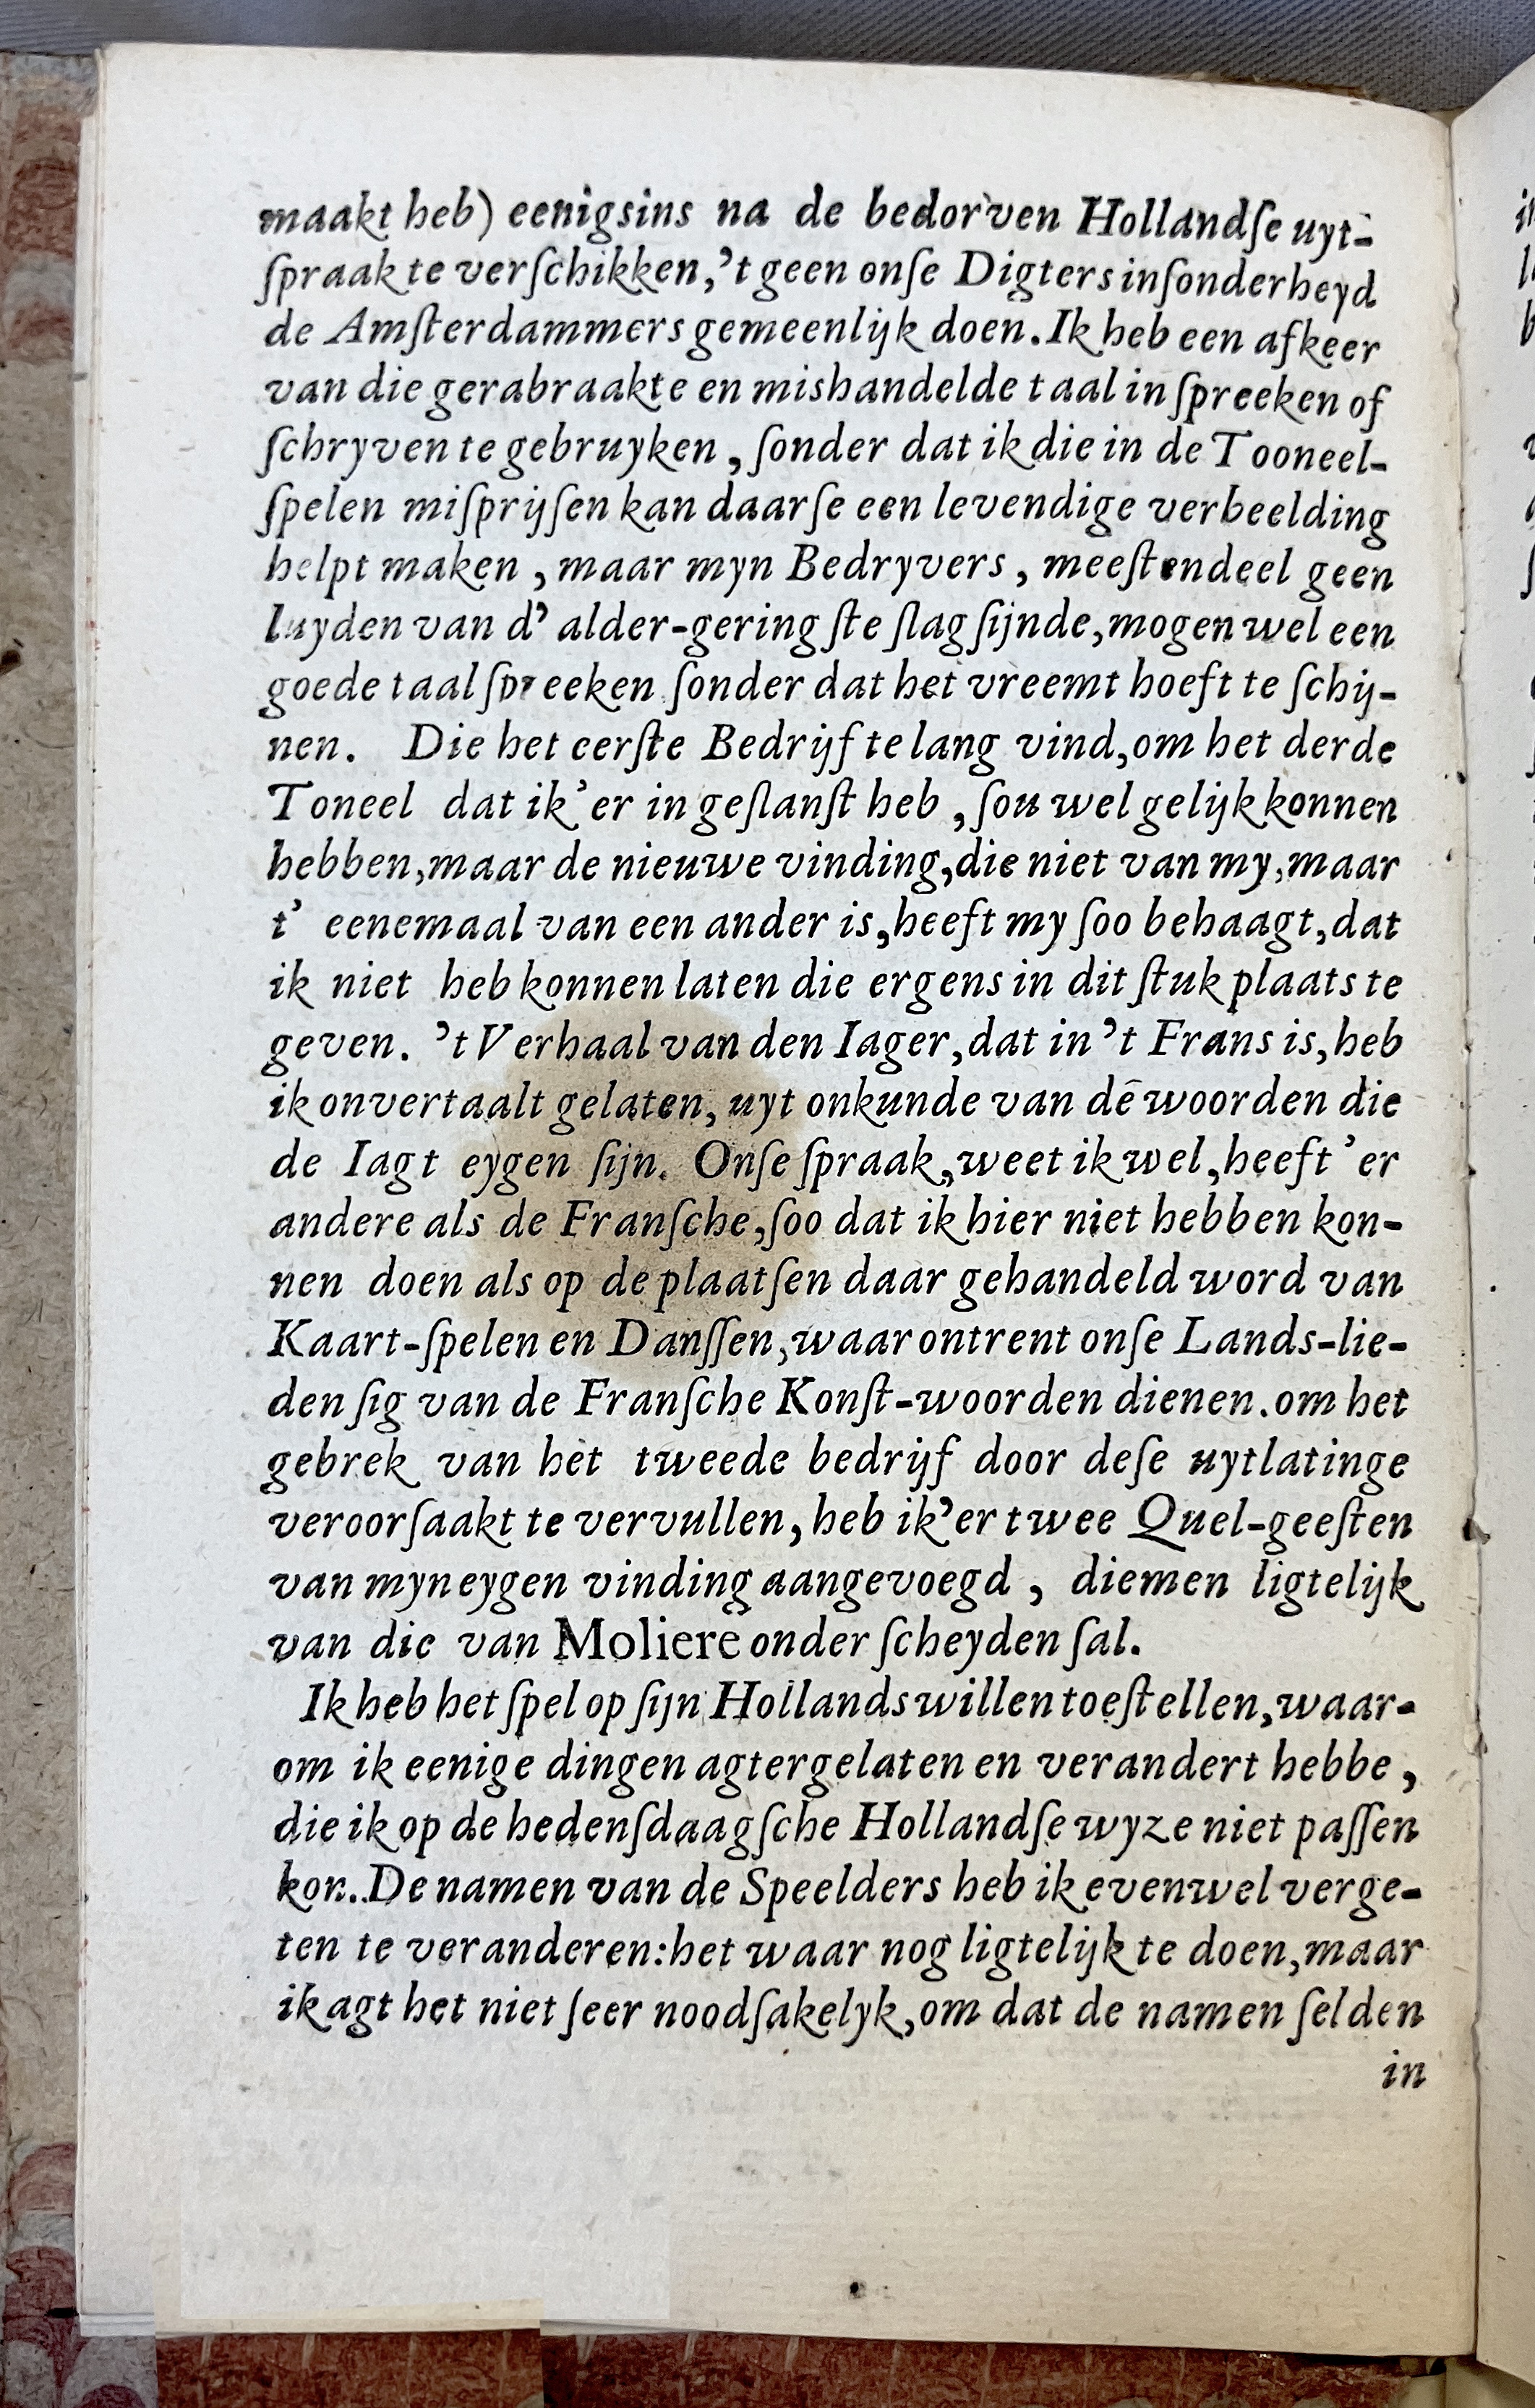 maakt heb) eenigsins na de bedorven Hollandſe uyt-
ſpraak te verſchikken,'t geen onſe Digters inſonderheyd
de Amſterdammers gemeenlijk doen. Ik heb een afkeer
van die gerabraakte en mishandelde taal in ſpreeken of
ſchryven te gebruyken, ſonder dat ik die in de Tooneel-
ſpelen miſprijſen kan daarſe een levendige verbeelding
helpt maken, maar myn Bedryvers, meeſtendeel geen
luyden van d' alder-geringſte ſlag ſijnde, mogen wel een
goede taal ſpreeken ſonder dat het vreemt hoeft te ſchij-
nen. Die het eerſte Bedrijf te lang vind, om het derde
Toneel dat ik'er in geſlanſt heb, ſou wel gelijk konnen
hebben, maar de nieuwe vinding, die niet van my, maar
t' eenemaal van een ander is, heeft my ſoo behaagt, dat
ik niet heb konnen laten die ergens in dit ſtuk plaats te
geven. 't Verhaal van den Iager, dat in 't Frans is, heb
ik onvertaalt gelaten, uyt onkunde van dē woorden die
de Iagt eygen ſijn. Onſe ſpraak, weet ik wel, heeft 'er
andere als de Franſche, ſoo dat ik hier niet hebben kon-
nen doen als op de plaatſen daar gehandeld word van
Kaart-ſpelen en Danſſen, waar ontrent onſe Lands-lie-
den ſig van de Franſche Konſt-woorden dienen. om het
gebrek van het tweede bedrijf door deſe uytlatinge
veroorſaakt te vervullen, heb ik'er twee Quel-geeſten
van myn eygen vinding aangevoegd, diemen ligtelijk
van die van Moliere onderſcheyden ſal.
Ik heb het ſpel op ſijn Hollands willen toeſtellen, waar-
om ik eenige dingen agtergelaten en verandert hebbe,
die ik op de hedenſdaagſche Hollandſe wyze niet paſſen
kon. De namen van de Speelders heb ik evenwel verge-
ten te veranderen: het waar nog ligtelijk te doen, maar
ik agt het niet ſeer noodſakelyk, om dat de namen ſelden
in